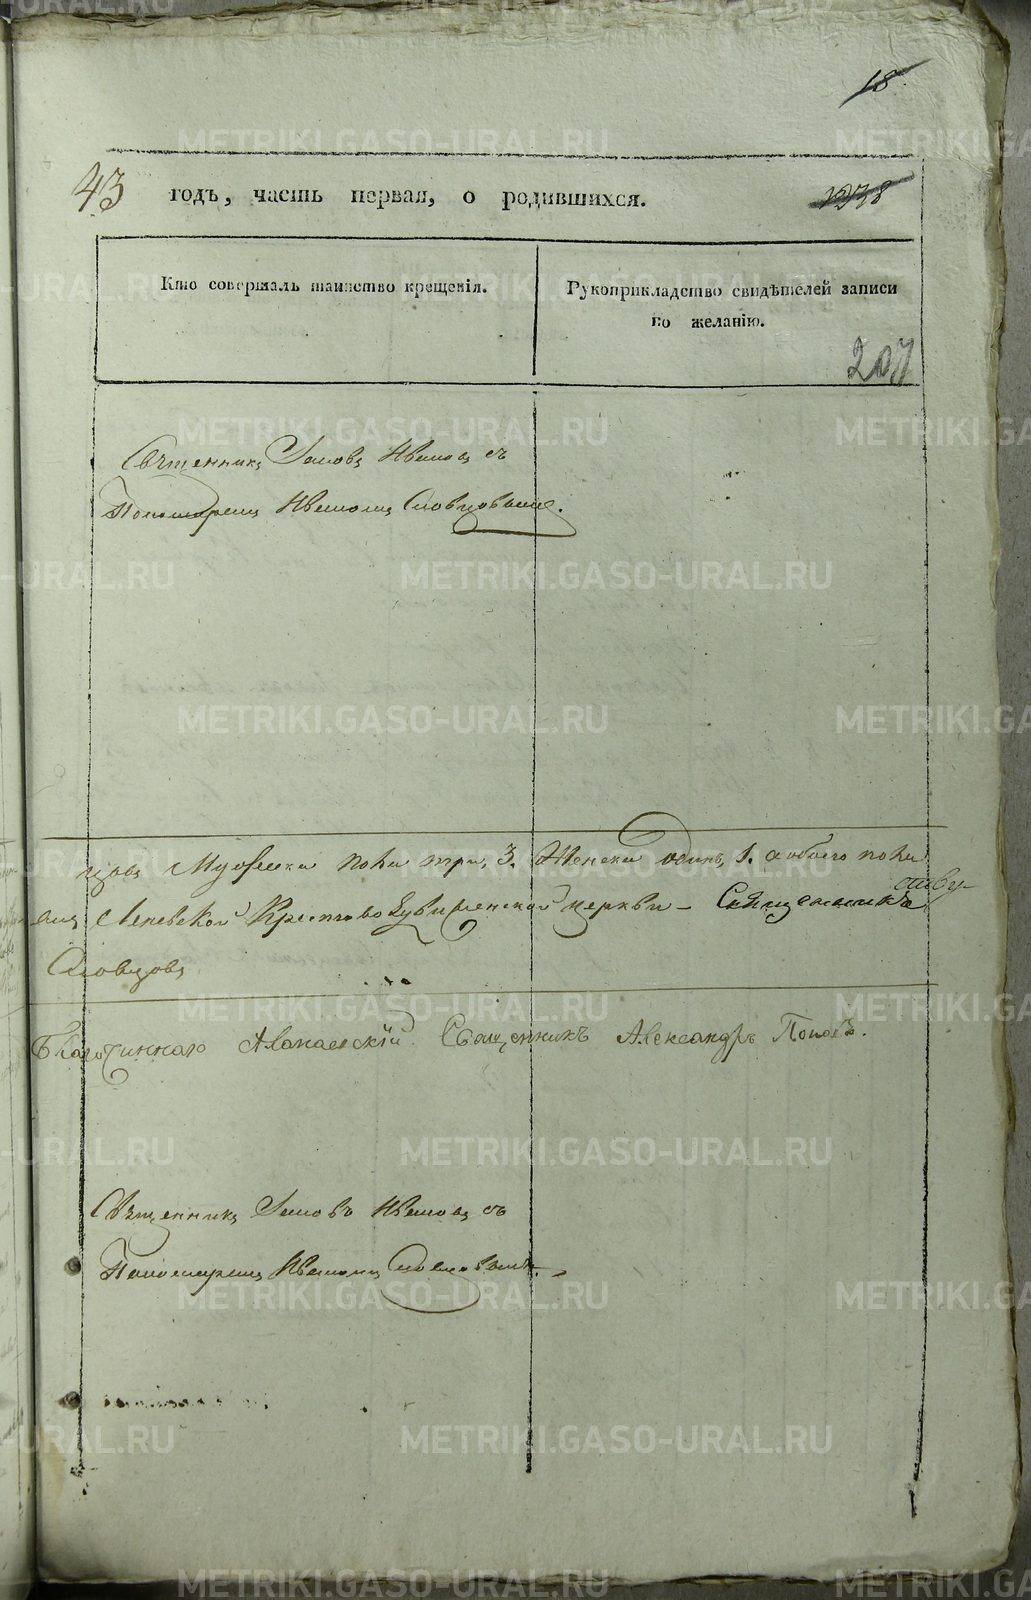 18
43 годъ, часть первая, о родившихся. 1238
Кто совершалъ таинство крещенія.
Рукоприкладство свидѣтелей записи по желанію.
207
Священникъ Іаковъ Ивановъ съ
Пономаремъ Иваномъ Словцовымъ.
Мужеска пола три, 3. Женска одинъ, 1. а обоего пола
церкви – Священникъ
Словцовъ
Благочинной Священникъ Александръ Поповъ.
Священникъ Іаковъ Ивановъ съ
Пономаремъ Иваномъ Словцовымъ.
METRIKI.GASO-URAL.RU